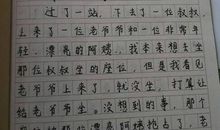 过了一站，下去了一位叔叔，
上来了一位老爷爷和一位非常年
轻、漂亮的阿姨。我本来想去坐
那位叔叔坐的座位，但是我看见
老爷爷上来了，就没坐，打算让
给老爷爷坐。没想到的事，那个
漂亮阿姨抢占了